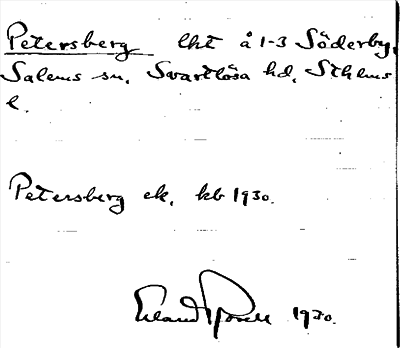 Petersberg lht å 1-3 Söderby,
Salems sn, Svartlösa hd, Sthlms
l.
Petersberg ek, kb 1930.
Erland 1930.